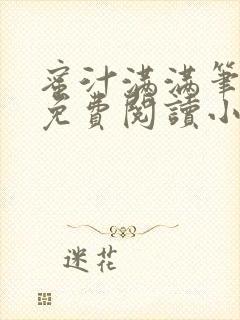 蜜汁滿滿筆
免費閱讀小
迷花